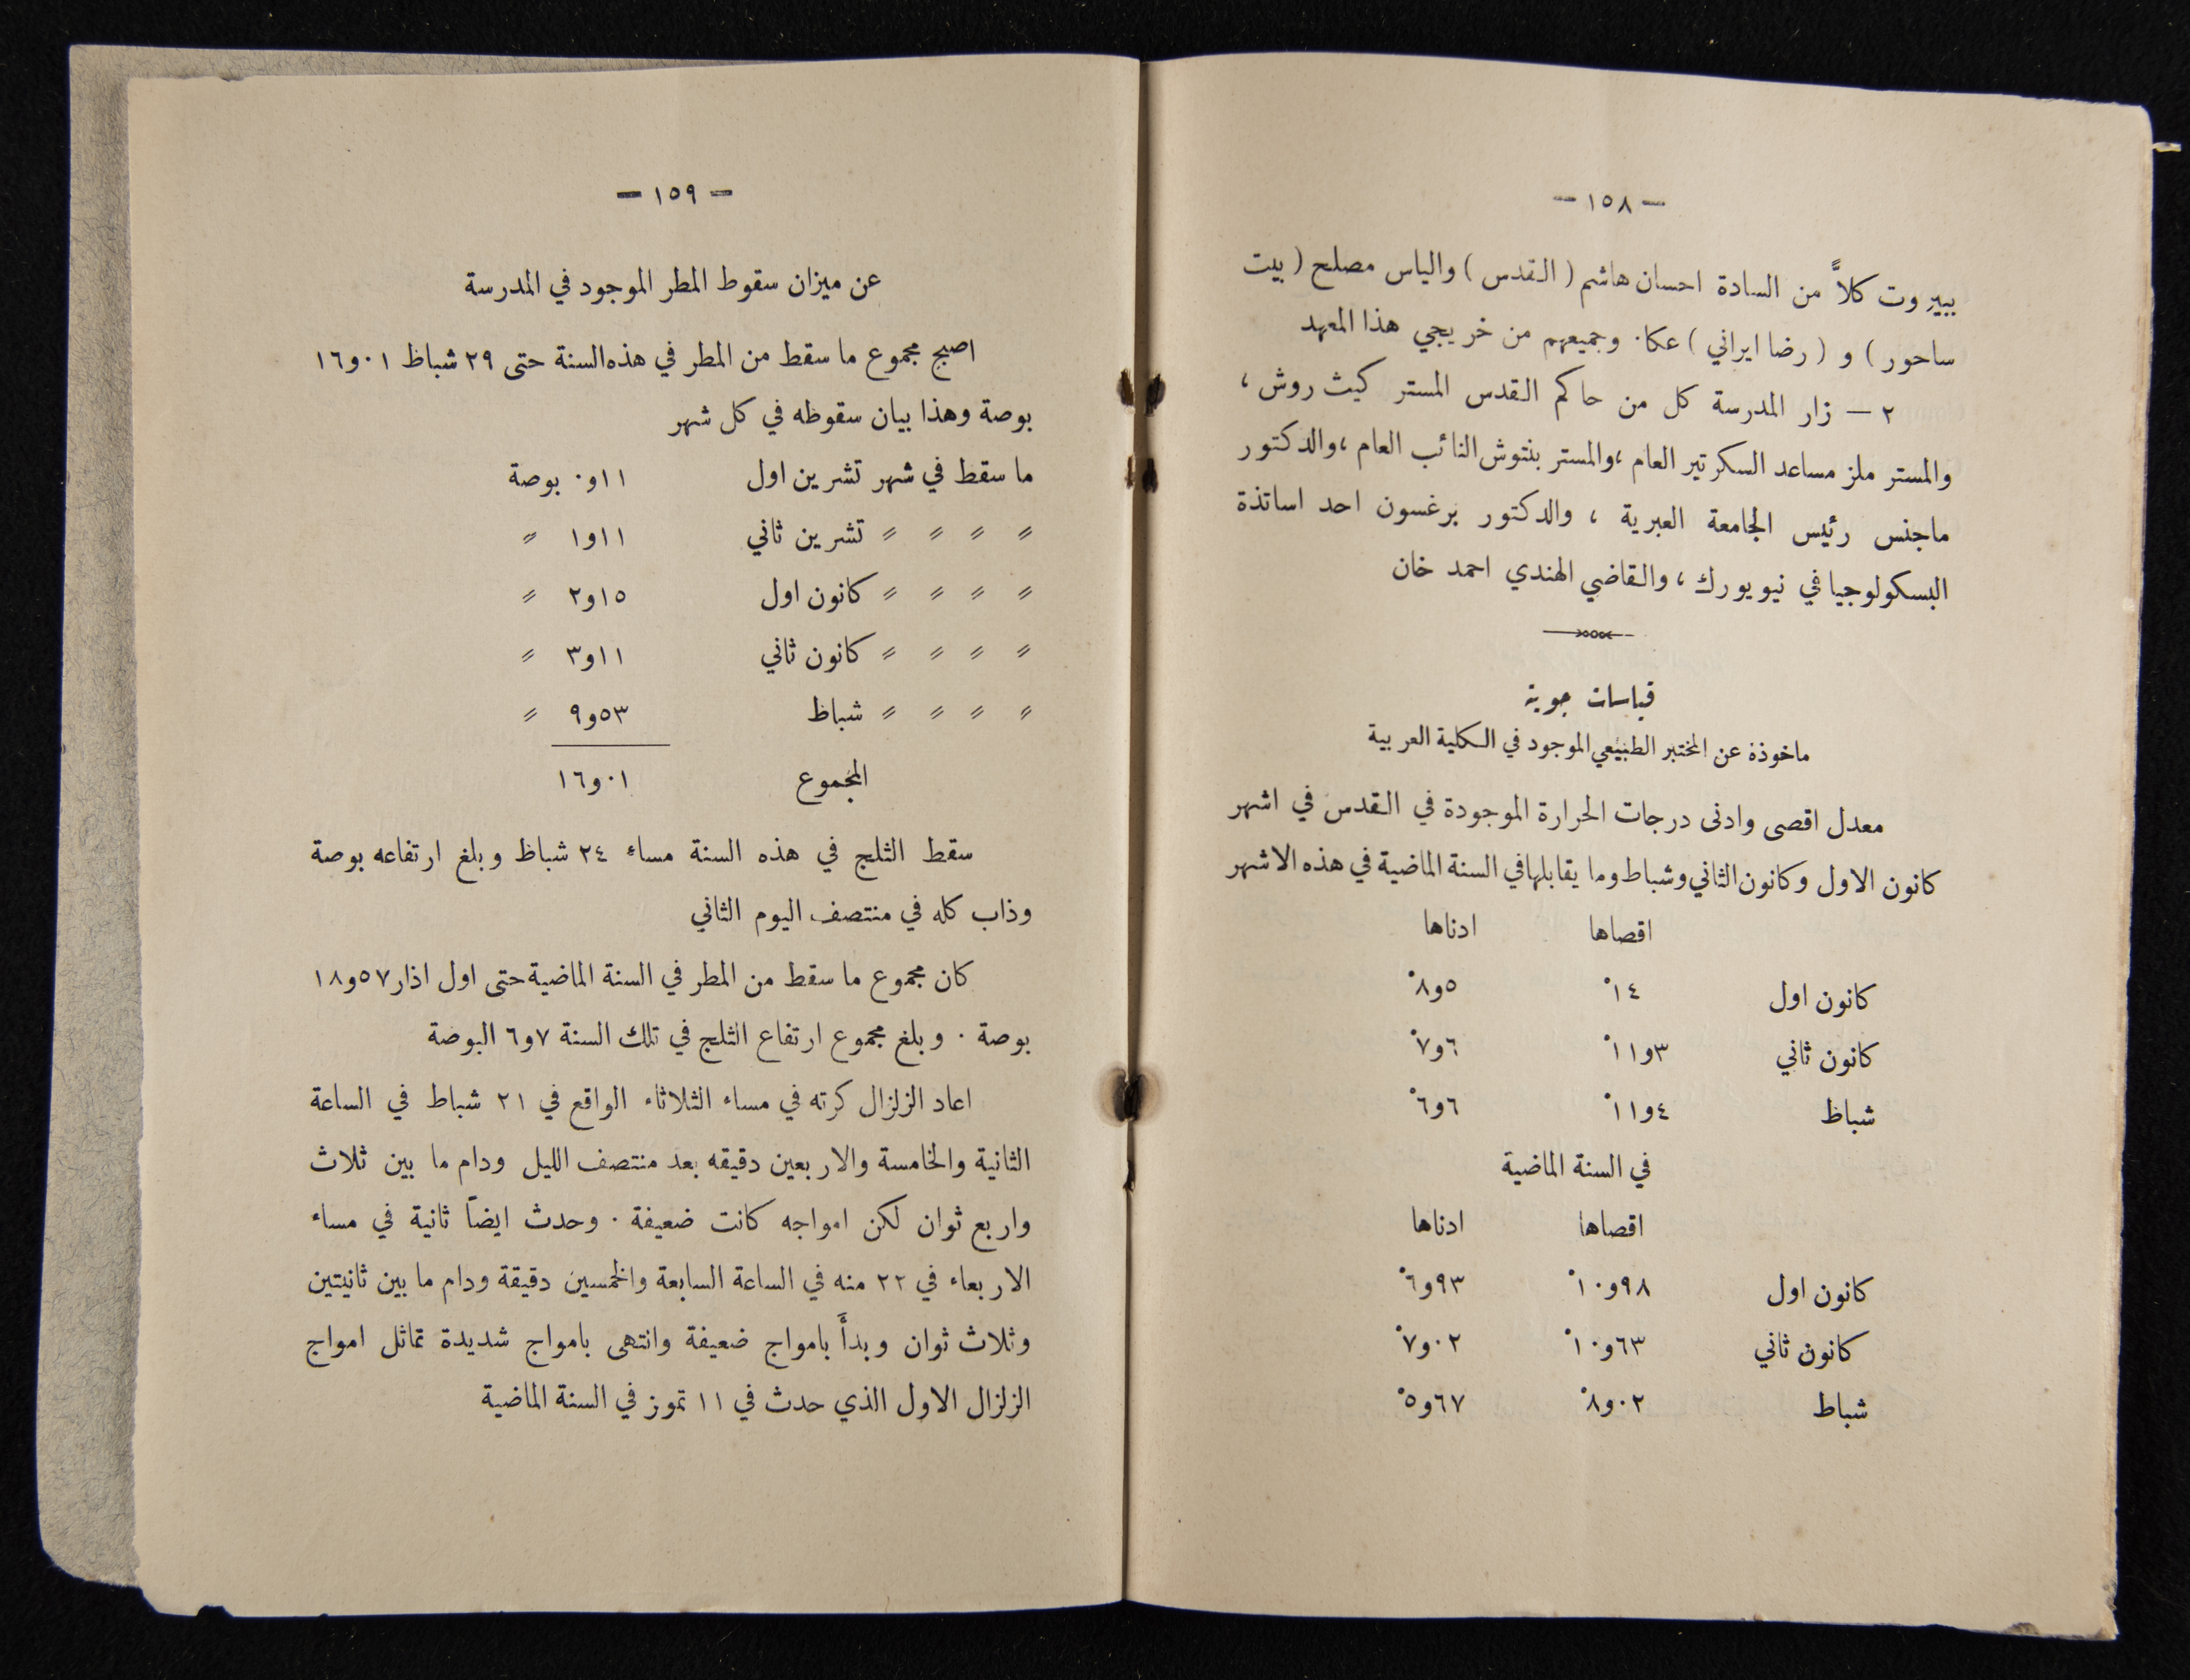 — ١٥٨ —
ببيروت كلاً من السادة احسان هاشم ( القدس ) والياس مصلح ( بيت
ساحور ) و ( رضا ايراني ) عكا. وجميعهم من خريجي هذا المعهد
٢ — زار المدرسة كل من حاكم القدس المستر كيث روش ،
والمستر ملز مساعد السكرتير العام ، والمستر بنتوش النائب العام ، والدكتور
ماجنس رئيس الجامعة العبرية ، والدكتور برغسون احد اساتذة
البسكولوجيا في نيويورك ، والقاضي الهندي احمد خان
قياسات جوية
ماخوذة عن المختبر الطبيعي الموجود في الكلية العربية
معدل اقصى وادنى درجات الحرارة الموجودة في القدس في اشهر
كانون الاول وكانون الثاني وشباط وما يقابلها في السنة الماضية في هذه الاشهر
اقصاها ادناها
كانون اول ١٤° ٥و٨°
كانون ثاني ٣و١١° ٦و٧°
شباظ ٤و١١° ٦و٦°
في السنة الماضية
اقصاها ادناها
كانون اول ٩٨و١٠° ٩٣و٦°
كانون ثاني ٦٣و١٠° ٠٢و٧°
شباط ٠٢و٨° ٦٧و٥°
— ١٥٩ —
عن ميزان سقوط المطر الموجود في المدرسة
اصبح مجموع ما سقط من المطر في هذه السنة حتى ٢٩ شباظ ٠١و١٦
بوصة وهذا بيان سقوظه في كل شهر
ما سقط في شهر تشرين اول ١١و٠ بوصة
〃 〃 〃 〃 تشرين ثاني ١١و١ 〃
〃 〃 〃 〃 كانون اول ١٥و٢ 〃
〃 〃 〃 〃 كانون ثاني ١١و٣ 〃
〃 〃 〃 〃 شباظ ٥٣و٩ 〃
المجموع ٠١و١٦
سقط الثلج في هذه السنة مساء ٢٤ شباظ وبلغ ارتفاعه بوصة
وذاب كله في منتصف اليوم الثاني
كان مجموع ما سقط من المطر في السنة الماضية حتى اول اذار ٥٧و١٨
بوصة . وبلغ مجموع ارتفاع الثلج في تلك السنة ٧و٦ البوصة
اعاد الزلزال كرته في مساء الثلاثاء الواقع في ٢١ شباط في الساعة
الثانية والخامسة والاربعين دقيقه بعد منتصف الليل ودام ما بين ثلاث
واربع ثوان لكن امواجه كانت ضعيفة . وحدث ايضاً ثانية في مساء
الاربعاء في ٢٢ منه في الساعة السابعة والخمسين دقيقة ودام ما بين ثانيتين
وثلاث ثوان وبدأَ بامواج ضعيفة وانتهى بامواج شديدة تماثل امواج
الزلزال الاول الذي حدث في ١١ تموز في السنة الماضية